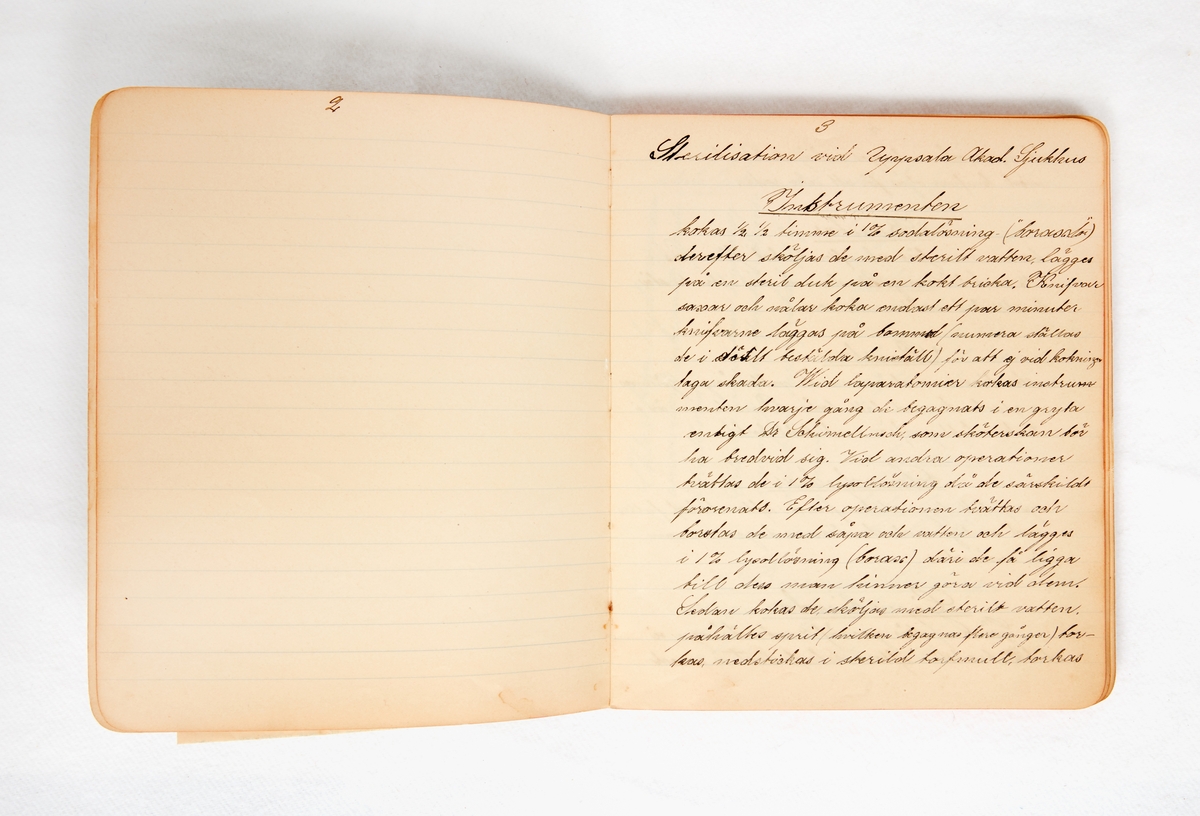 2
3
Sterilisation vid Uppsala Akad. Sjukhus
Instrumenten
kokas ½ timme i 1% sodalösning (boraxlös)
derefter sköljas de med sterilt vatten, lägges
på en steril duk på en kokt bricka. Knifvar
saxar och nålar koka endast ett par minuter
knifvarne läggas på bommul (numera ställas
de i beställda kniställ) för att ej vid kokning
taga skada. Vid laparatomier kokas instrum
menten hvarje gång de begagnats i en gryta
enligt Dr Schimellusch, som sköterskan bör
ha bredvid sig. Vid andra operationer
tvättas de i 1% lysollösning då de särskildt
förorenats. Efter operationen tvättas och
borstas de med såpa och vatten och lägges
i 1% lysollösning (borax) däri de få ligga
till dess man hinner göra vid dem.
Sedan kokas de, sköljas med sterilt vatten,
påhälles sprit, (hvilken begagnas flere gånger) tor-
kas, nedstickas i sterild torfmull, torkas